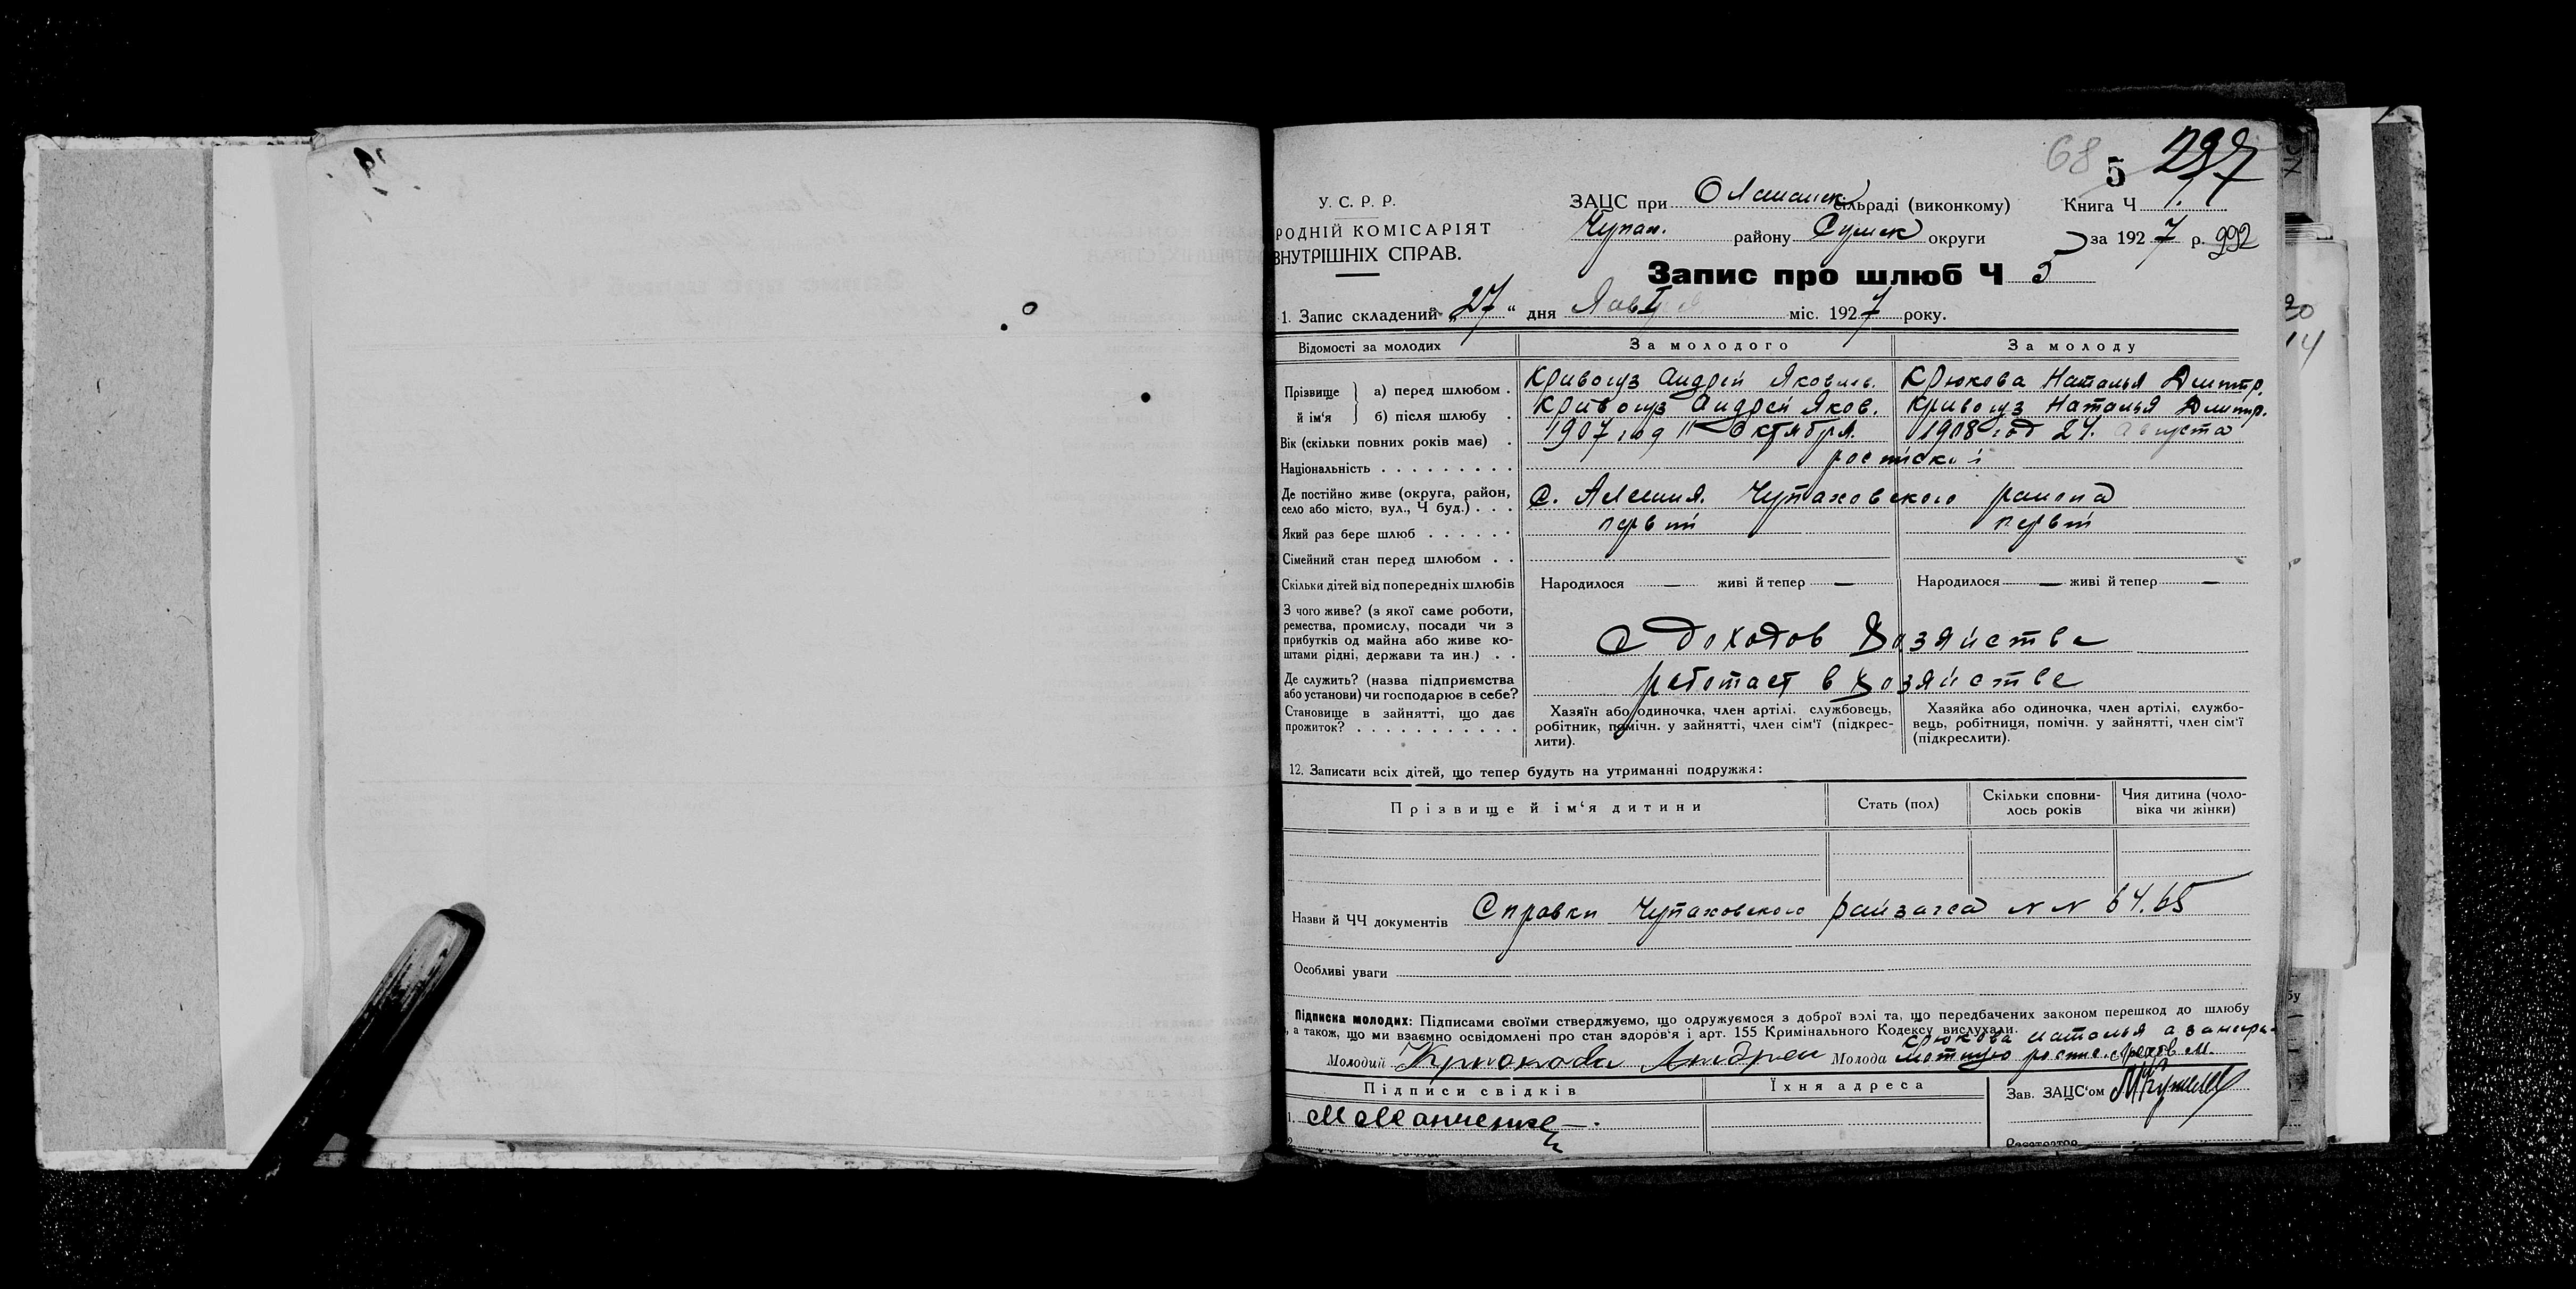 68 5 237
У. С. Р. Р.
РОДНІЙ КОМІСАРІЯТ
ВНУТРІШНІХ СПРАВ.
ЗАЦС при сільраді (виконкому) Книга Ч 1.
Чупах. району Сумск округи за 1927 р. 992
Запис про шлюб Ч 5
1. Запис складений „27“ дня міс. 1927 року.
Відомості за молодих За молодого За молоду
Прізвище й ім'я а) перед шлюбом . Кривогуз Андрей Яковлев. Крюкова Наталья Дмитр.
б) після шлюбу . Кривогуз Андрей Яков. Кривогуз Наталья Дмитр.
Вік (скільки повних років має) . 1907 год 11 Октября. 1908 год 24. Августа
Національність . . . . . . . . .
Де постійно живе (округа, район, село або місто, вул., Ч буд.) . . . С. Алешня. Чупаховского района
Який раз бере шлюб . . . . . . первый первый
Сімейний стан перед шлюбом . .
Скільки дітей від попередніх шлюбів Народилося — живі й тепер — Народилося — живі й тепер —
З чого живе? (з якої саме роботи,
ремества, промислу, посади чи з
прибутків од майна або живе ко-
штами рідні, держави та ин.) . . С доходов Хозяйства
Де служить? (назва підприємства
або установи) чи господарює в себе? работает в хозяйстве
Становище в зайнятті, що дає
прожиток? . . . . . . . . . . .
Хазяїн або одиночка, член артілі, службовець,
робітник, помічн. у зайнятті, член сім'ї (підкрес-
лити).
Хазяйка або одиночка, член артілі, службо-
вець, робітниця, помічн. у зайнятті, член сім'ї
(підкреслити).
12. Записати всіх дітей, що тепер будуть на утриманні подружжя:
Прізвище й ім'я дитини Стать (пол) Скільки сповни-
лось років Чия дитина (чоло-
віка чи жінки)
Назви й ЧЧ документів Справки Чупаховского райзагса NN 64.65
Особливі уваги
Підписка молодих: Підписами своїми стверджуємо, що одружуємося з доброї волі та, що передбачених законом перешкод до шлюбу
, а також, що ми взаємно освідомлені про стан здоров'я і арт. 155 Кримінального Кодексу вислухали.
Крюкова Наталья а за негра-
Молодий Андрей Молода мотную роспис.
Підписи свідків Їхня адреса Зав. ЗАЦС'ом
1.
2.
Реєстратор